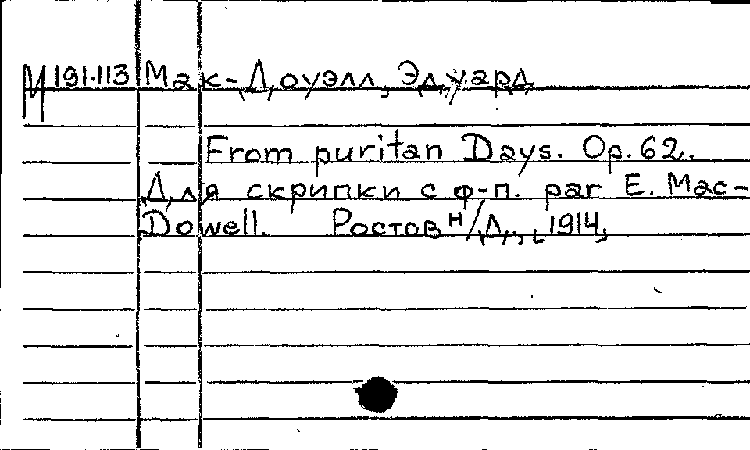 М 191.113 Мак-Доуэлл, Эдуард
From puritan Days. Op. 62.
Для скрипки с ф-п. par E. Mac-
Dowell. Ростов н/Д., 1914,